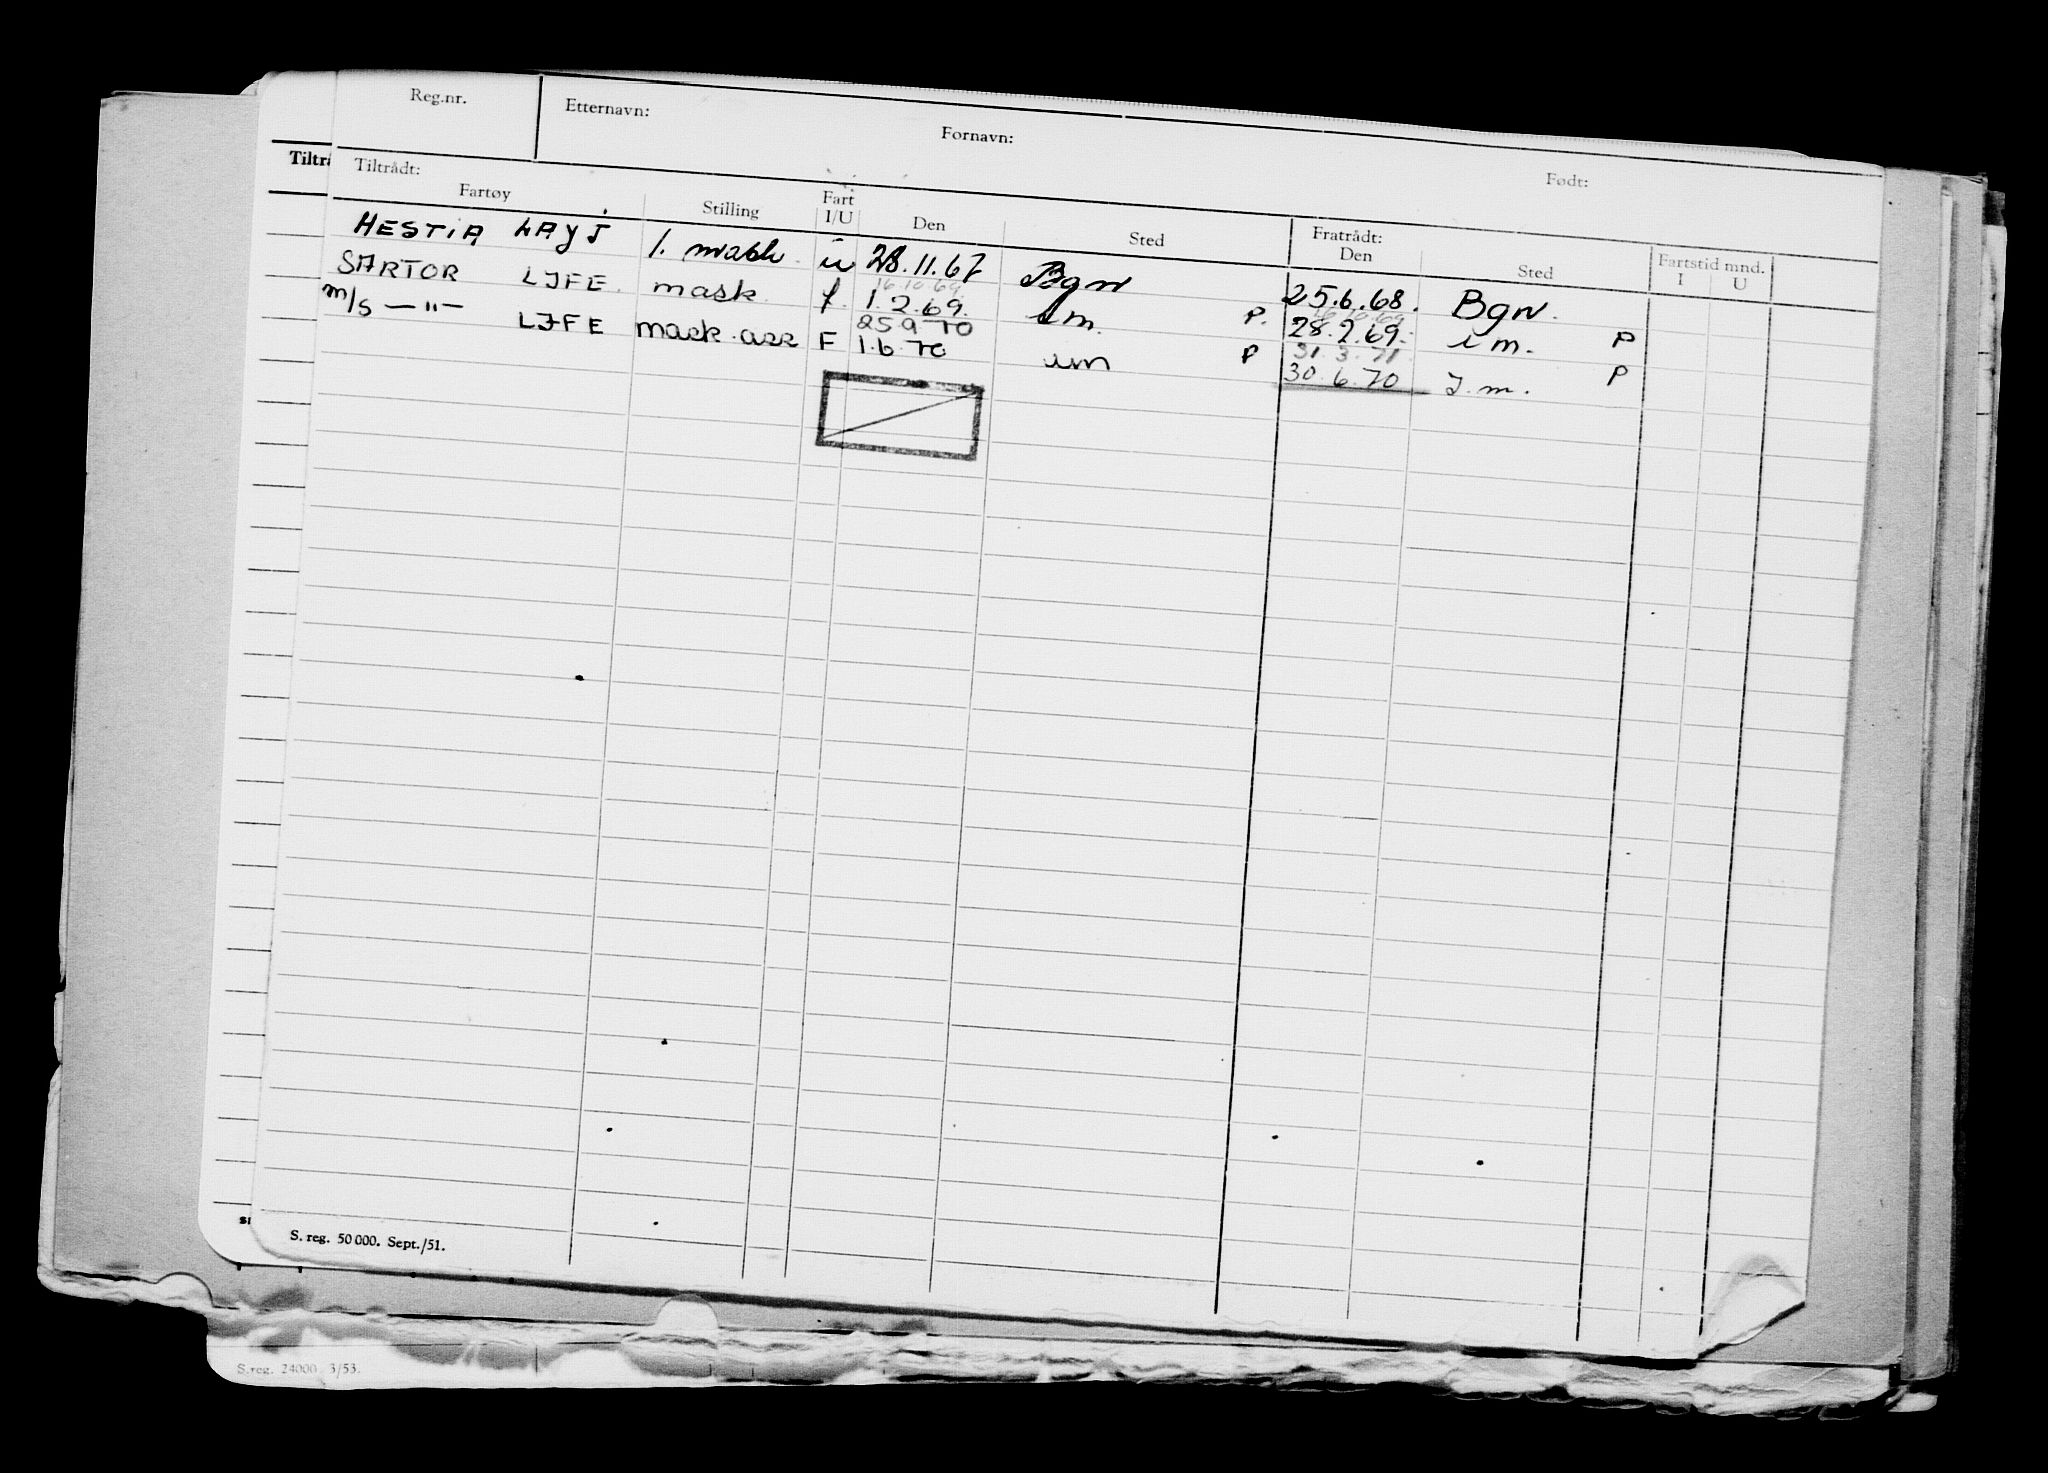 Reg.nr. Etternavn: Fornavn: Født:
Tiltrå Tiltrådt: Fratrådt:
Fartøy Stilling Fart I/U Den Sted Den Sted Fartstid mnd. I U
HESTIA LAYJ 1. mask. u 28.11.67 Bgn 25.6.68. Bgn.
16.10.69 16.10.69
SARTOR LJFE. mask f. 1.2.69. i m. P. 28.2.69. i m. P
25 9 70 31.3.71
m/s —"— LJFE mask.ass F 1.6.70 im P 30.6.70 I.m. P
S. reg. 50 000. Sept./51.
S.reg. 24000. 3/53.